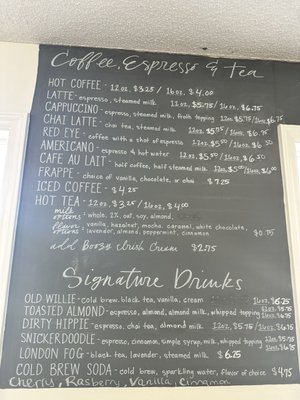 Coffee, Espresso & Tea
HOT COFFEE - 12oz. $3.25 / 16oz. $4.00
LATTE - espresso, steamed milk. 12oz. $5.75 / 16oz. $6.75
CAPPUCCINO - espresso, steamed milk, froth topping 12oz. $5.75 / 16oz. $6.75
CHAI LATTE - chai tea, steamed milk 12oz. $5.75 / 16oz. $6.75
RED EYE - coffee with a shot of espresso 12oz. $5.50 / 16oz. $6.50
AMERICANO - espresso & hot water 12oz. $5.50 / 16oz. $6.50
CAFE AU LAIT - half coffee, half steamed milk 12oz. $5.50 / 16oz. $6.00
FRAPPE - choice of vanilla, chocolate, or chai $7.25
ICED COFFEE - $4.25
HOT TEA - 12oz. $3.25 / 16oz. $4.00
milk options: whole, 2%, oat, soy, almond
flavor options: vanilla, hazelnut, mocha, caramel, white chocolate,
lavender, almond, peppermint, cinnamon $0.75
add Boozy Irish Cream $2.75
Signature Drinks
OLD WILLIE - cold brew, black tea, vanilla, cream 16oz. $6.25
TOASTED ALMOND - espresso, almond, almond milk, whipped topping 12oz. $5.75 16oz. $6.75
DIRTY HIPPIE - espresso, chai tea, almond milk 12oz. $5.75 / 16oz. $6.75
SNICKERDOODLE - espresso, cinnamon, simple syrup, milk, whipped topping 12oz. $5.75 16oz. $6.75
LONDON FOG - black tea, lavender, steamed milk $6.25
COLD BREW SODA - cold brew, sparkling water, flavor of choice $4.75
Cherry, Rasberry, Vanilla, Cinnamon